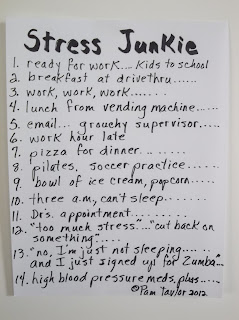 Stress Junkie
1. ready for work... kids to school
2. breakfast at drivethru......
3. work, work, work.......
4. lunch from vending machine.....
5. email... grouchy supervisor.....
6. work hour late
7. pizza for dinner... .....
8. pilates, soccer practice.....
9. bowl of ice cream, popcorn....
10. three a.m., can't sleep.....
11. Dr's. appointment.....
12. "too much stress"...."cut back on
something"....
13. "no, I'm just not sleeping.....
and I just signed up for Zumba"...
14. high blood pressure meds, plus.....
©Pam Taylor 2012